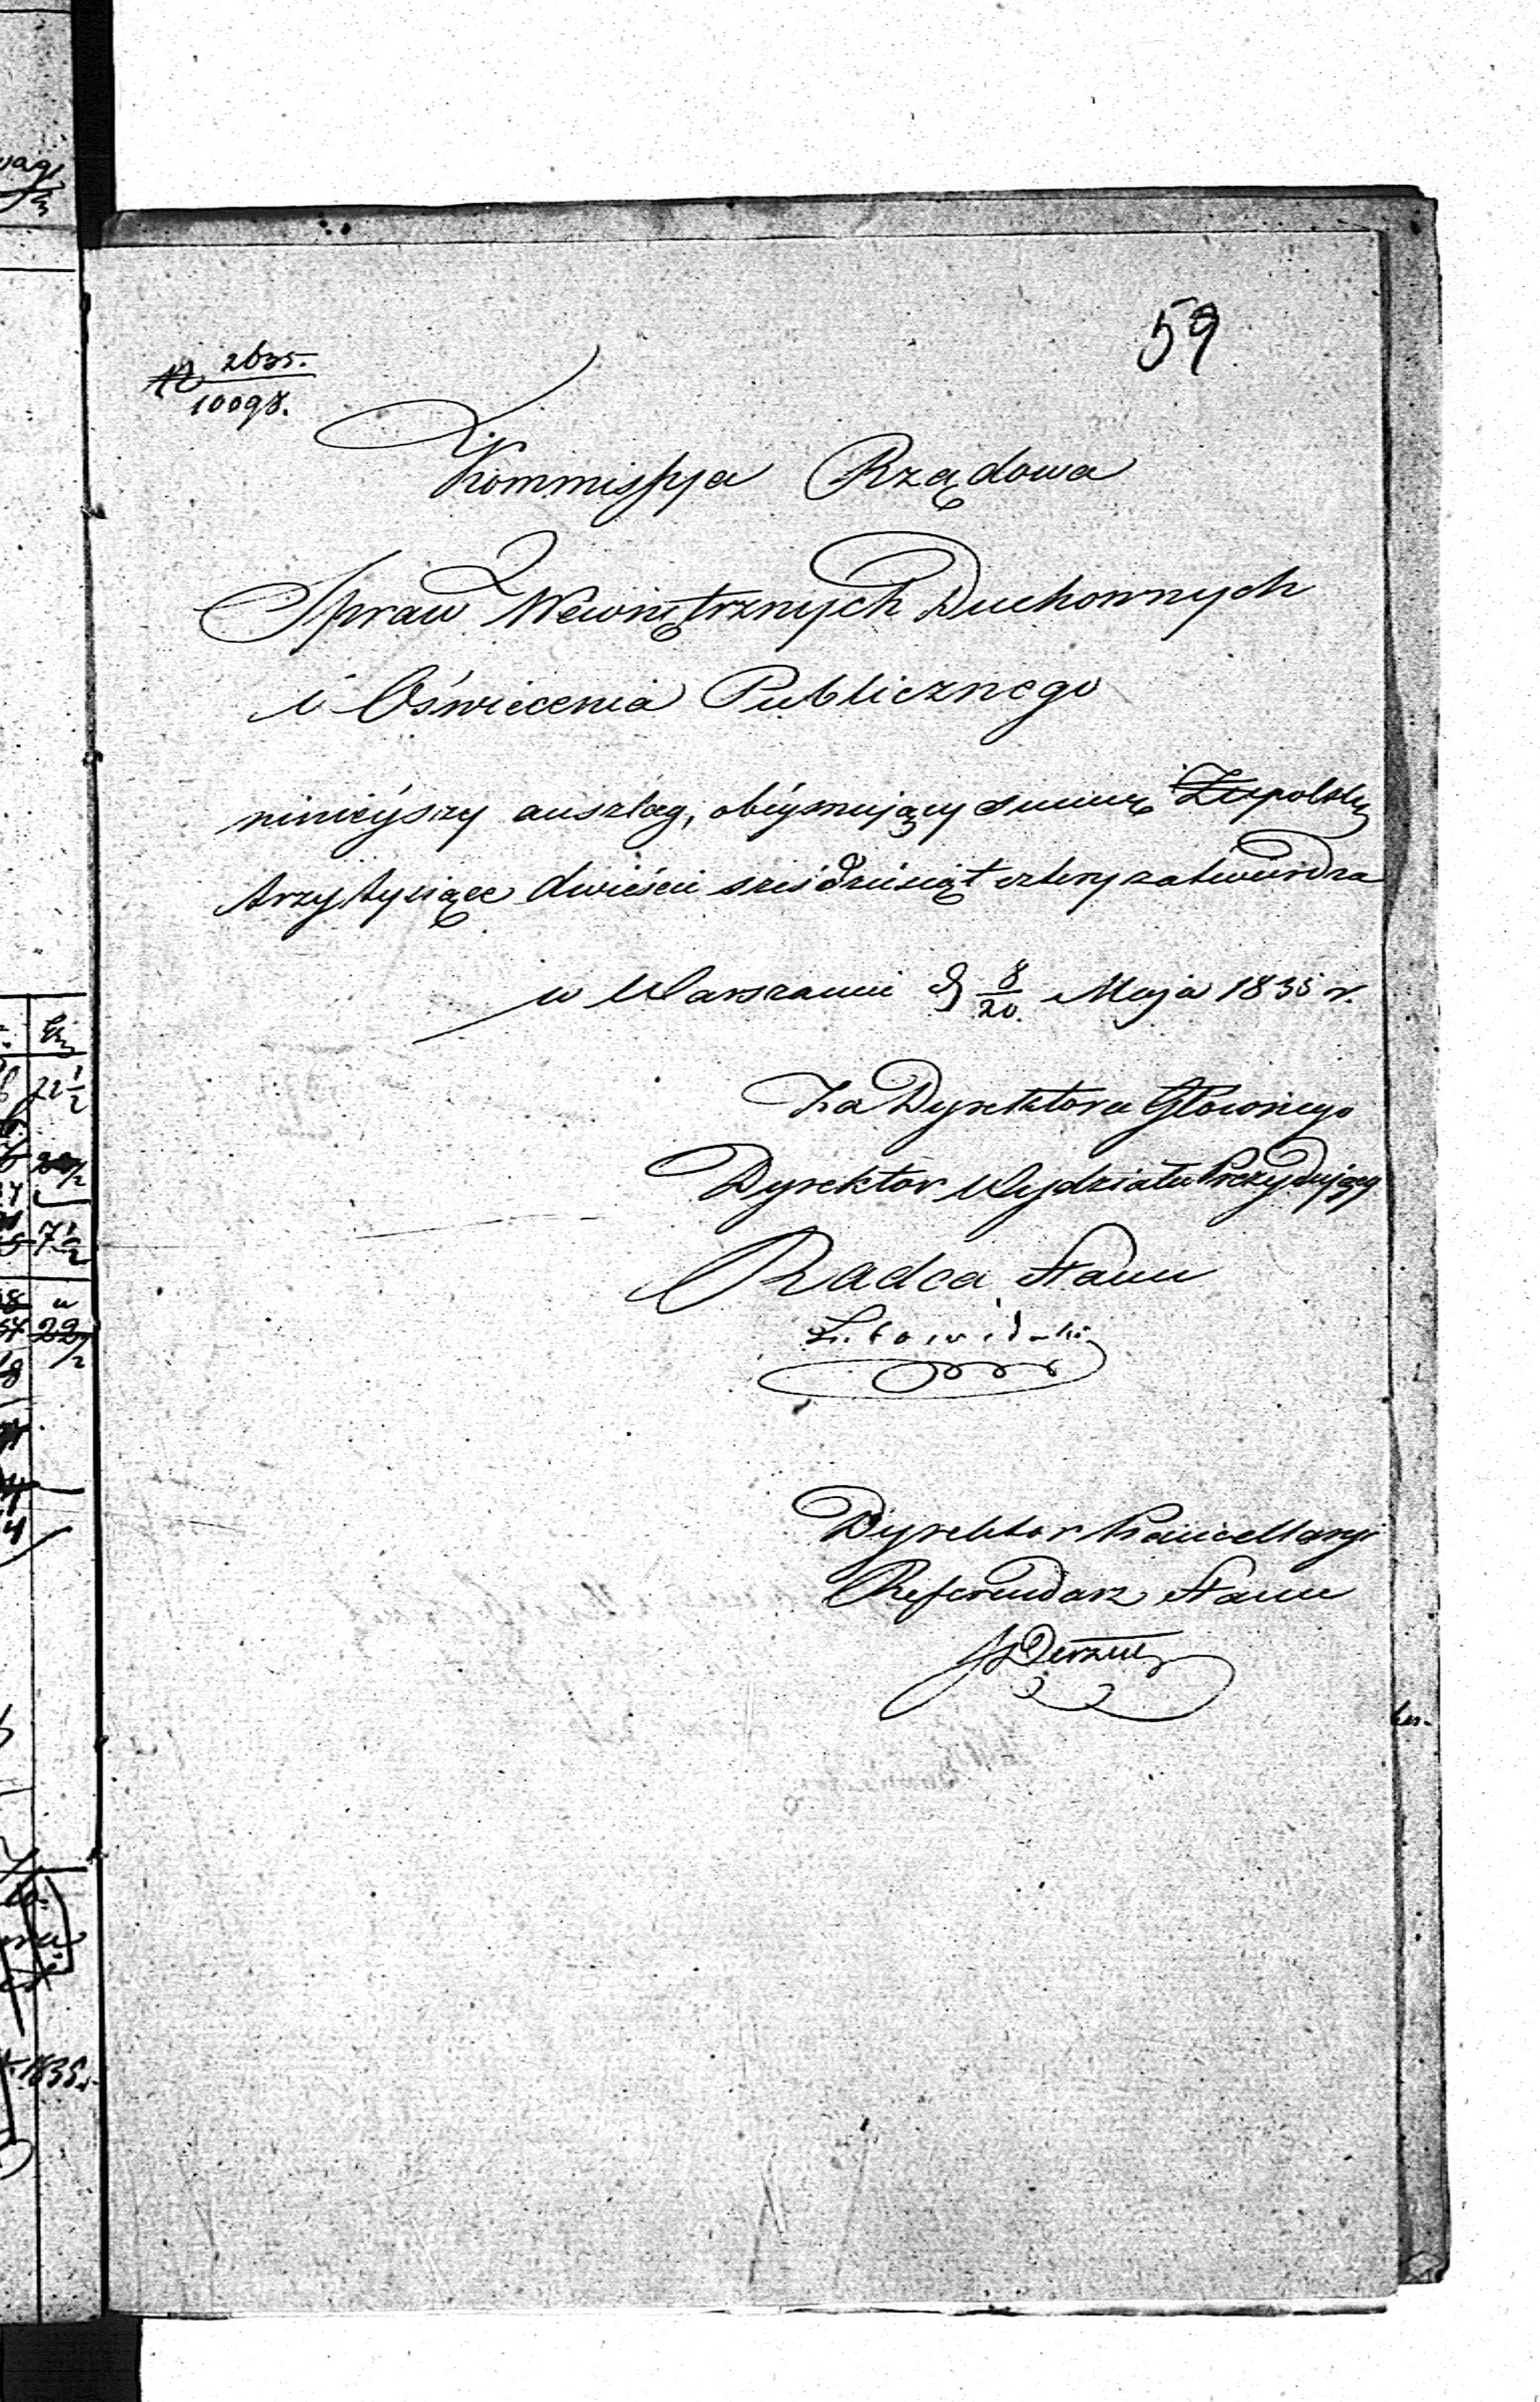 59
N 2635.
10098.
Kommissya Rządowa
Spraw Wewnętrznych Duchownych
i Oświecenia Publicznego
ninieyszy anszlag, obeymujący summę Złxpolskę
trzy tysiące dwieście sześćdziesiąt cztery zatwierdza
w Warszawie d 8/20. Maja 1835 r.
Za Dyrektora Głównego
Dyrektor Wydziału Prezydujący
Radca Stanu
Dyrektor Kancellaryi
Referendarz Stanu